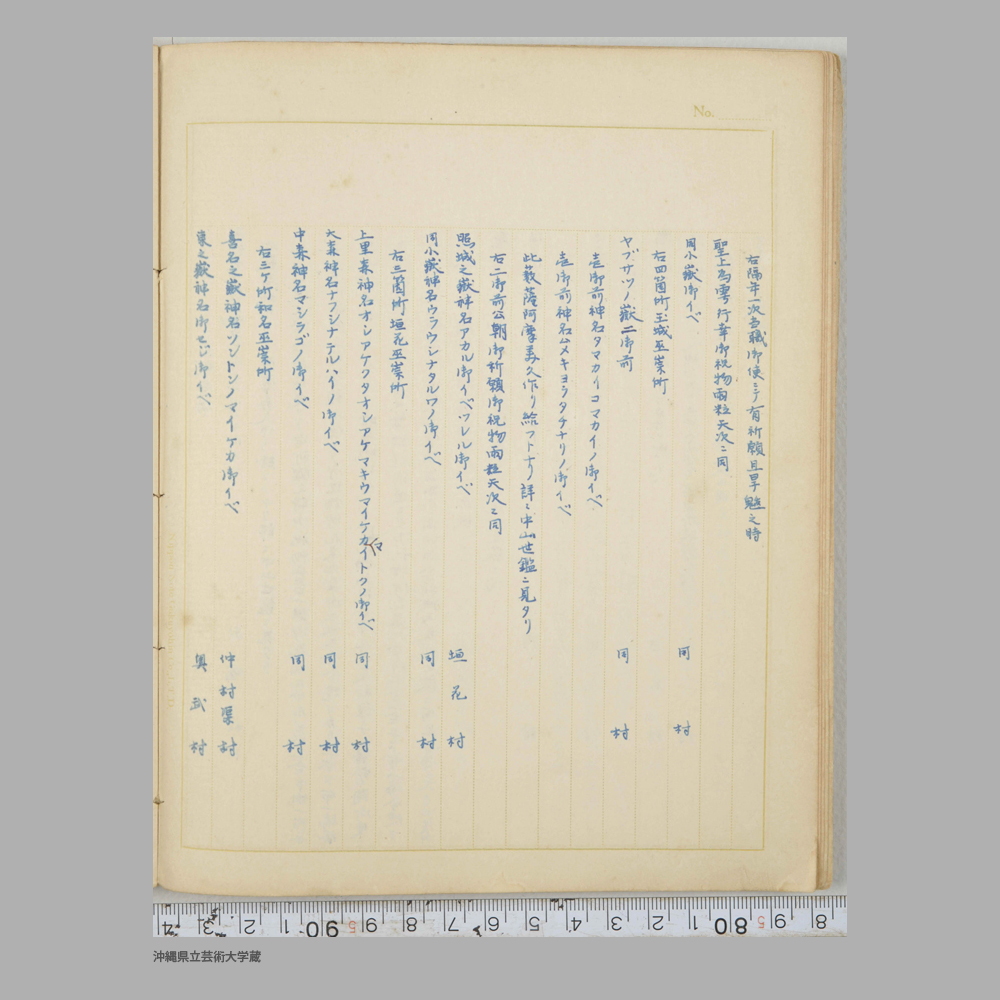 No.
右隔年一次当職御使ニテ有祈願且旱魃之時
聖上為雩行幸御祝物両粒天次ニ同
同小嶽御イベ 同村
右四箇所玉城巫崇所
ヤブサツノ嶽二御前 同村
壱御前神名タマカイコマカイノ御イベ
壱御前神名ムメキヨラタチナリノ御イベ
此薮薩阿摩美久作リ給フトナリ詳ニ中山世鑑ニ見タリ
右二御前公朝御祈願御祝物両粒天次ニ同
照城之嶽神名アカル御イベツレル御イベ 垣花村
同小嶽神名ウラウシナタルワノ御イベ 同村
右三箇所垣花巫崇所
上里森神名オシアケツタオシアケマキウマイケカイトクノ御イベ 同村
大森神名ナフシナテルハイノ御イベ 同村
中森神名マシラゴノ御イベ 同村
右三ヶ所和名巫崇所
喜名之嶽神名ソントンノマイケカ御イベ 仲村渠村
東之嶽神名御セジ御イベ 奥武村
沖縄県立芸術大学蔵